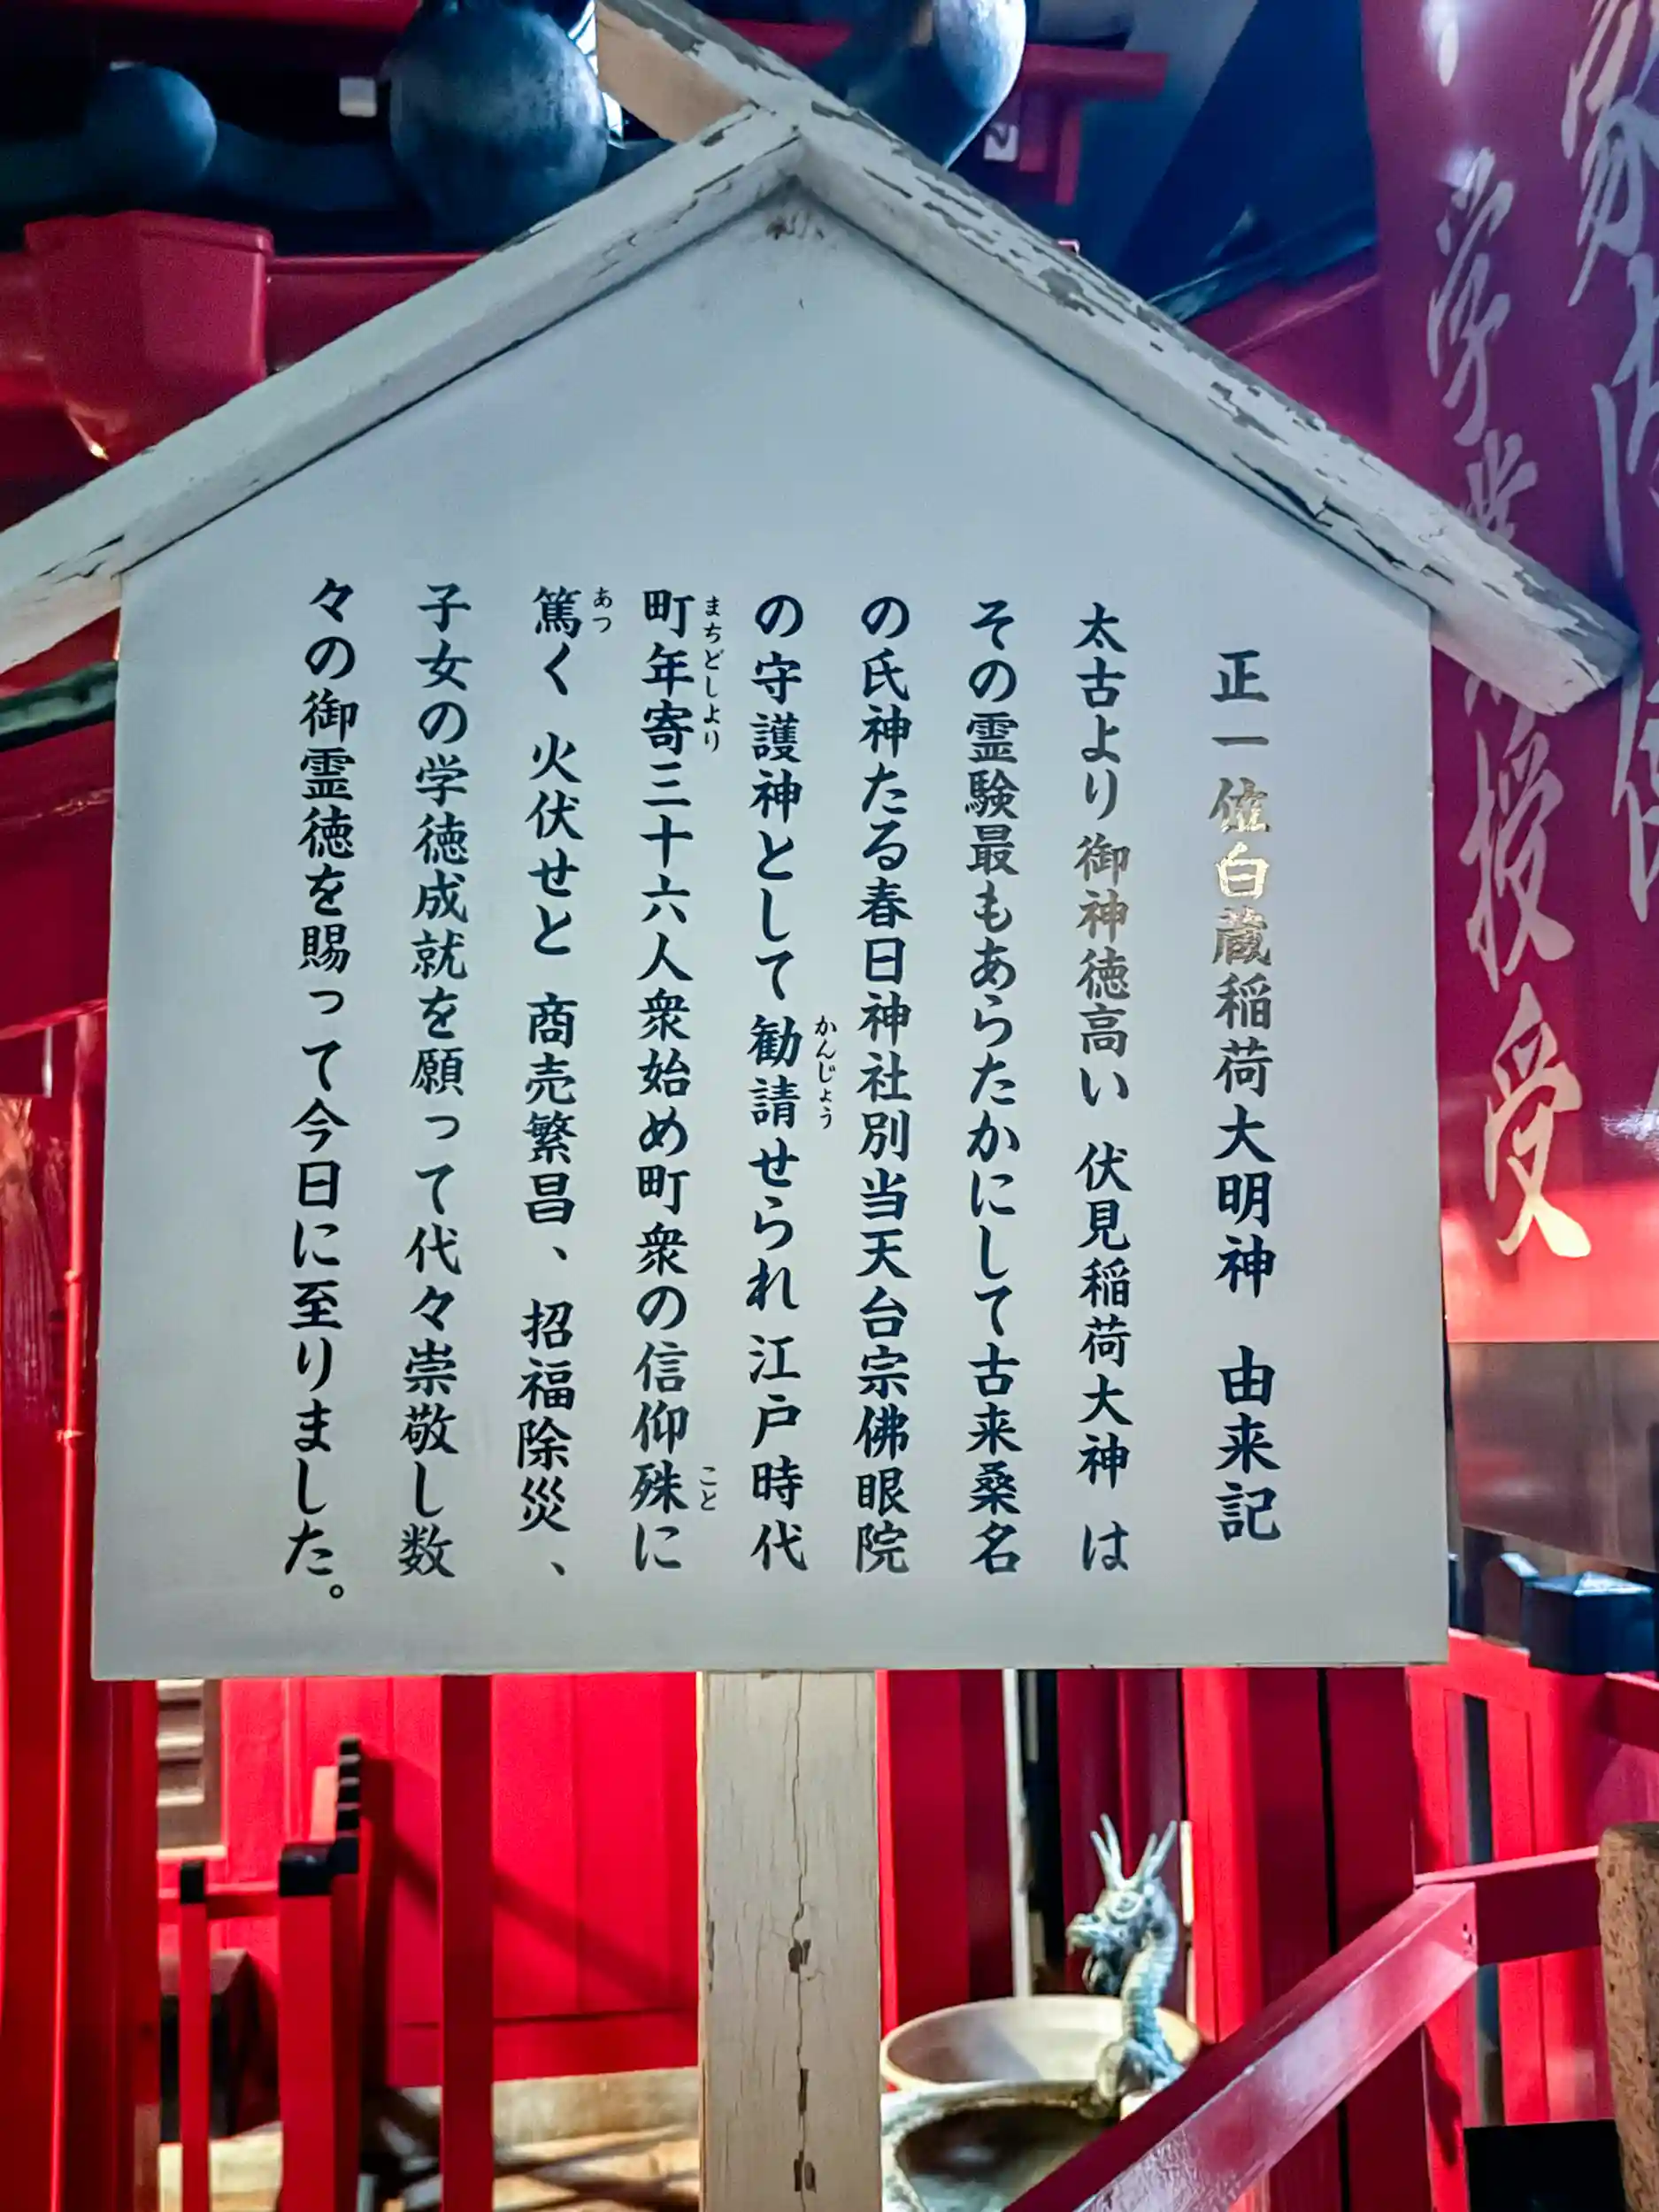 正一位白蔵稲荷大明神　由来記
太古より御神徳高い　伏見稲荷大神　は
その霊験最もあらたかにして古来桑名
の氏神たる春日神社別当天台宗佛眼院
の守護神として勧請せられ江戸時代
かんじょう
町年寄三十六人衆始め町衆の信仰殊に
まちどしより
こと
篤く　火伏せと　商売繁昌、招福除災、
あつ
子女の学徳成就を願って代々崇敬し数
々の御霊徳を賜って今日に至りました。
学業
授受